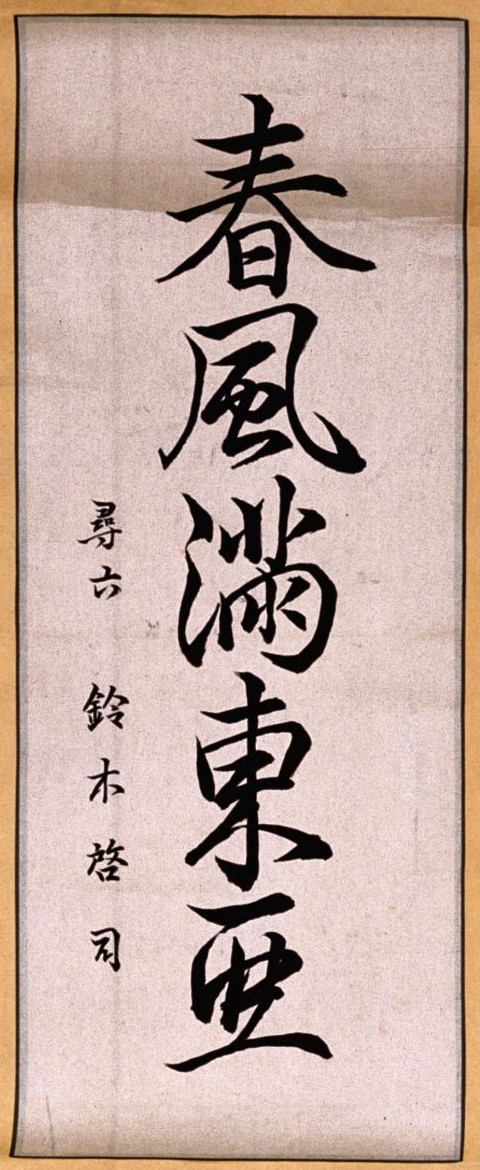 春風満東亜
尋六 鈴木啓司